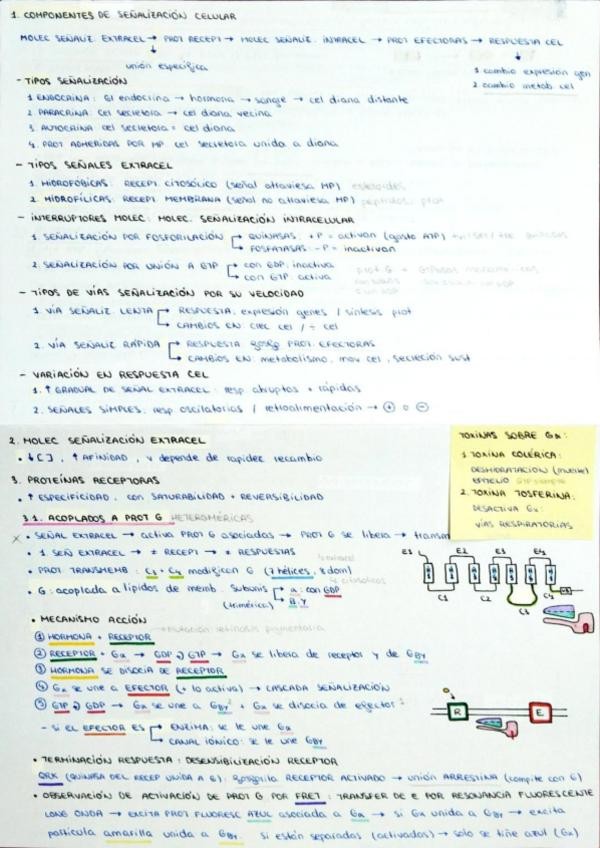 1. COMPONENTES DE SEÑALIZACIÓN CELULAR
MOLEC SEÑALIZ. EXTRACEL → PROT RECEPT → MOLEC SEÑALIZ. INTRACEL → PROT EFECTORAS → RESPUESTA CEL
unión específica
1 cambio expresión gen
2 cambio metab cel
- TIPOS SEÑALIZACIÓN
1 ENDOCRINA: Gl endocrina → hormona → sangre → cel diana distante
2. PARACRINA: cel secretora → cel diana vecina
3. AUTOCRINA cel secretora = cel diana
4. PROT ADHERIDAS POR MP cel secretora unida a diana
- TIPOS SEÑALES EXTRACEL
1. HIDROFÓBICAS: RECEPT CITOSÓLICO (señal atraviesa MP) esteroides
2. HIDROFÍLICAS: RECEPT MEMBRANA (señal no atraviesa MP) péptidos, prot
- INTERRUPTORES MOLEC: MOLEC. SEÑALIZACIÓN INTRACELULAR
1. SEÑALIZACIÓN POR FOSFORILACIÓN → QUINASAS: +P = activan (gasto ATP)
→ FOSFATASAS: -P = inactivan
2. SEÑALIZACIÓN POR UNIÓN A GTP → con GDP: inactiva
→ con GTP: activa
- TIPOS DE VÍAS SEÑALIZACIÓN POR SU VELOCIDAD
1. VÍA SEÑALIZ. LENTA → RESPUESTA: expresión genes / síntesis prot
→ CAMBIOS EN: crec cel / ÷ cel
2. VÍA SEÑALIZ RÁPIDA → RESPUESTA PROT. EFECTORAS
→ CAMBIOS EN: metabolismo, mov cel, secreción sust
- VARIACIÓN EN RESPUESTA CEL
1. ↑ GRADUAL DE SEÑAL EXTRACEL: resp abruptas + rápidas
2. SEÑALES SIMPLES: resp oscilatorias / retroalimentación → ⊕ o ⊖
2. MOLEC SEÑALIZACIÓN EXTRACEL
• ↓[ ], ↑ AFINIDAD, v depende de rapidez recambio
TOXINAS SOBRE Gα:
1 TOXINA COLÉRICA:
DESHIDRATACIÓN (muerte)
EPITELIO
2. TOXINA TOSFERINA:
DESACTIVA Gα:
VÍAS RESPIRATORIAS
3. PROTEÍNAS RECEPTORAS
• ↑ ESPECIFICIDAD, con SATURABILIDAD + REVERSIBILIDAD
3.1. ACOPLADOS A PROT G HETEROMÉRICAS
X • SEÑAL EXTRACEL → activa PROT G asociadas → PROT G se libera → transm
• 1 SEÑ EXTRACEL → ≠ RECEPT → ≠ RESPUESTAS
• PROT TRANSMEMB: C3 + C4 modifican G (7 hélices, 8 dom)
• G: acoplada a lípidos de memb. Subunis → α: con GDP
(trimérica) → β, γ
E1 E2 E3 E4
C1 C2 C3 C4
• MECANISMO ACCIÓN
① HORMONA + RECEPTOR
② RECEPTOR + Gα → GDP GTP → Gα se libera de receptor y de Gβγ
③ HORMONA SE DISOCIA DE RECEPTOR
④ Gα se une a EFECTOR (+ lo activa) → CASCADA SEÑALIZACIÓN
⑤ GTP GDP → Gα se une a Gβγ + Gα se disocia de efector
- SI EL EFECTOR ES → ENZIMA: se le une Gα
→ CANAL IÓNICO: se le une Gβγ
R E
• TERMINACIÓN RESPUESTA: DESENSIBILIZACIÓN RECEPTOR
GRK (QUINASA DEL RECEP UNIDA A G): fosforila RECEPTOR ACTIVADO → unión ARRESTINA (compite con G)
• OBSERVACIÓN DE ACTIVACIÓN DE PROT G POR FRET: TRANSFER DE E POR RESONANCIA FLUORESCENTE
LONG ONDA → EXCITA PROT FLUORESC AZUL asociada a Gα → si Gα unida a Gβγ → excita
partícula amarilla unida a Gβγ. Si están separadas (activadas) → solo se tiñe azul (Gα)